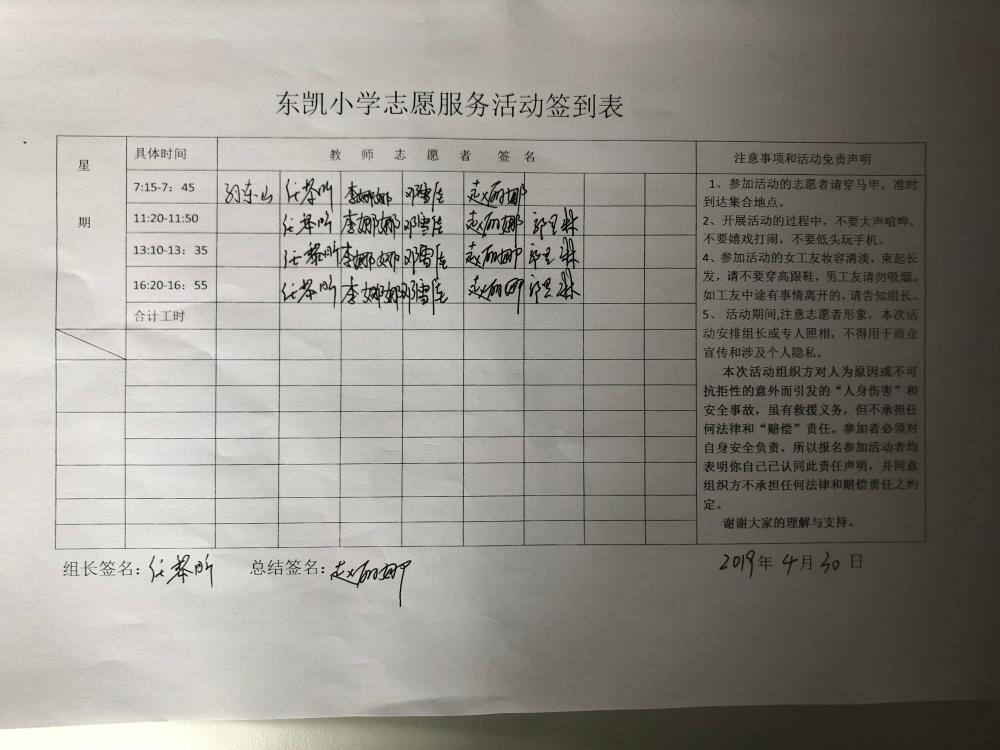 东凯小学志愿服务活动签到表
星期
具体时间
教师志愿者签名
注意事项和活动免责声明
7:15-7：45 孙东山 李娜娜 邓雪佳 赵丽娜
11:20-11:50 李娜娜 邓雪佳 赵丽娜
13:10-13：35 李娜娜 邓雪佳 赵丽娜
16:20-16：55 李娜娜 邓雪佳 赵丽娜
合计工时
1、参加活动的志愿者请穿马甲，准时
到达集合地点。
2、开展活动的过程中，不要大声喧哗，
不要嬉戏打闹，不要低头玩手机。
4、参加活动的女工友妆容清淡，束起长
发，请不要穿高跟鞋，男工友请勿吸烟。
如工友中途有事情离开的，请告知组长。
5、 活动期间,注意志愿者形象，本次活
动安排组长或专人照相，不得用于商业
宣传和涉及个人隐私。
本次活动组织方对人为原因或不可
抗拒性的意外而引发的“人身伤害”和
安全事故，虽有救援义务，但不承担任
何法律和“赔偿”责任。参加者必须对
自身安全负责，所以报名参加活动者均
表明你自己已认同此责任声明，并同意
组织方不承担任何法律和赔偿责任之约
定。
谢谢大家的理解与支持。
组长签名： 总结签名：赵丽娜
2019年 4月 30日